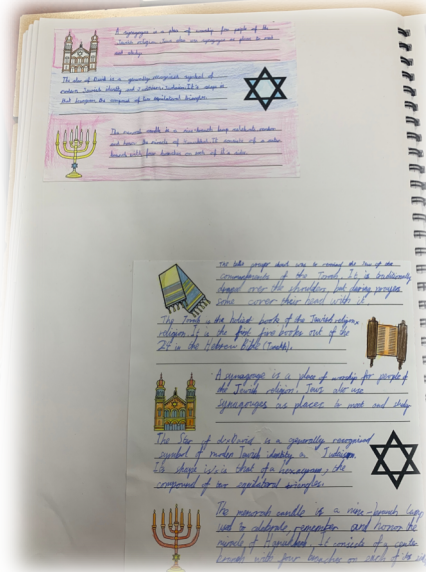 A synagogue is a place of worship for people of the
Jewish religion. Jews also use synagogues as places to meet
and study
The star of David is a generally recognised symbol of
modern Jewish Identity and Judaism. Its shape is
that the compound of two equilateral triangles.
The menorah candle is a nine-branch lamp
and honor the miracle of Hanukkah. It consists of a center
branch with four branches on each of its side.
The prayer shawl was to remind the Jews of the
commandments of the Torah. It is traditionally
draped over the shoulders, but during prayer
some cover their head with it.
The Torah is the holiest books of the Jewish religion,
religion. It is the first five books out of the
24 in the Hebrew Bible (Tanakh).
A synagogue is a place of worship for people of
the Jewish religion. Jews also use
synagogues as places to meet and study
The Star of David is a generally recognised
symbol of modern Jewish identity in Judaism.
Its shape is that of a hexagram, the
compound of two equilateral triangles.
The menorah candle is a nine-branch lamp
used to celebrate, remember and honor the
miracle of Hanukkah. It consists of a center
branch with four branches on each of its side